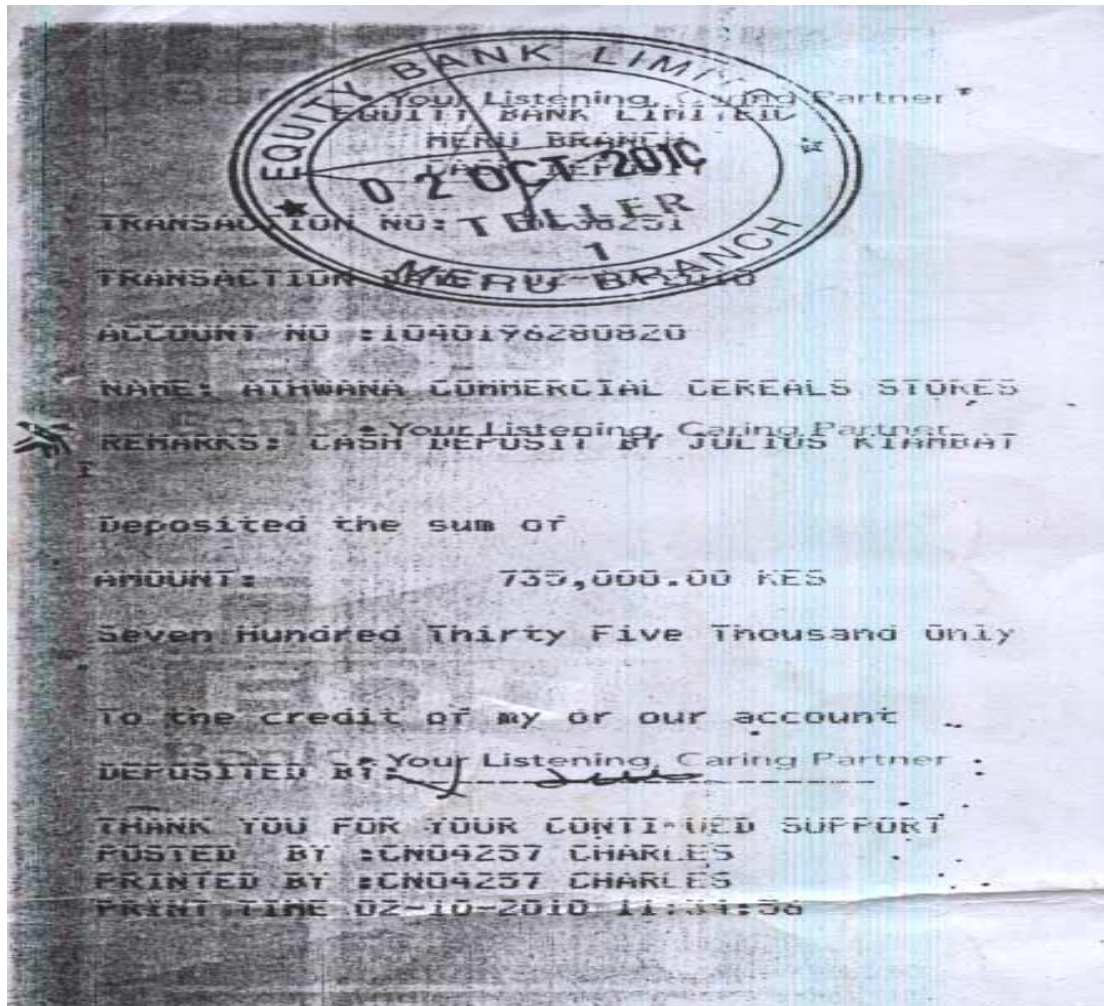 EQUITY BANK LIMITED
Your Listening, Caring Partner
EQUITY BANK LIMITED
MERU BRANCH
CASH DEPOSIT
02 OCT 2010
TELLER
1
MERU BRANCH
TRANSACTION NO:
TRANSACTION
ACCOUNT NO :1040196280820
NAME: ATHWANA COMMERCIAL CEREALS STORES
Your Listening, Caring Partner
REMARKS: CASH DEPOSIT BY JULIUS KIAMBAT
Deposited the sum of
AMOUNT: 735,000.00 KES
Seven Hundred Thirty Five Thousand Only
To the credit of my or our account
Bank Your Listening, Caring Partner
DEPOSITED BY:
THANK YOU FOR YOUR CONTI UED SUPPORT
POSTED BY :CN04257 CHARLES
PRINTED BY :CN04257 CHARLES
PRINT TIME 02-10-2010 11:34:36